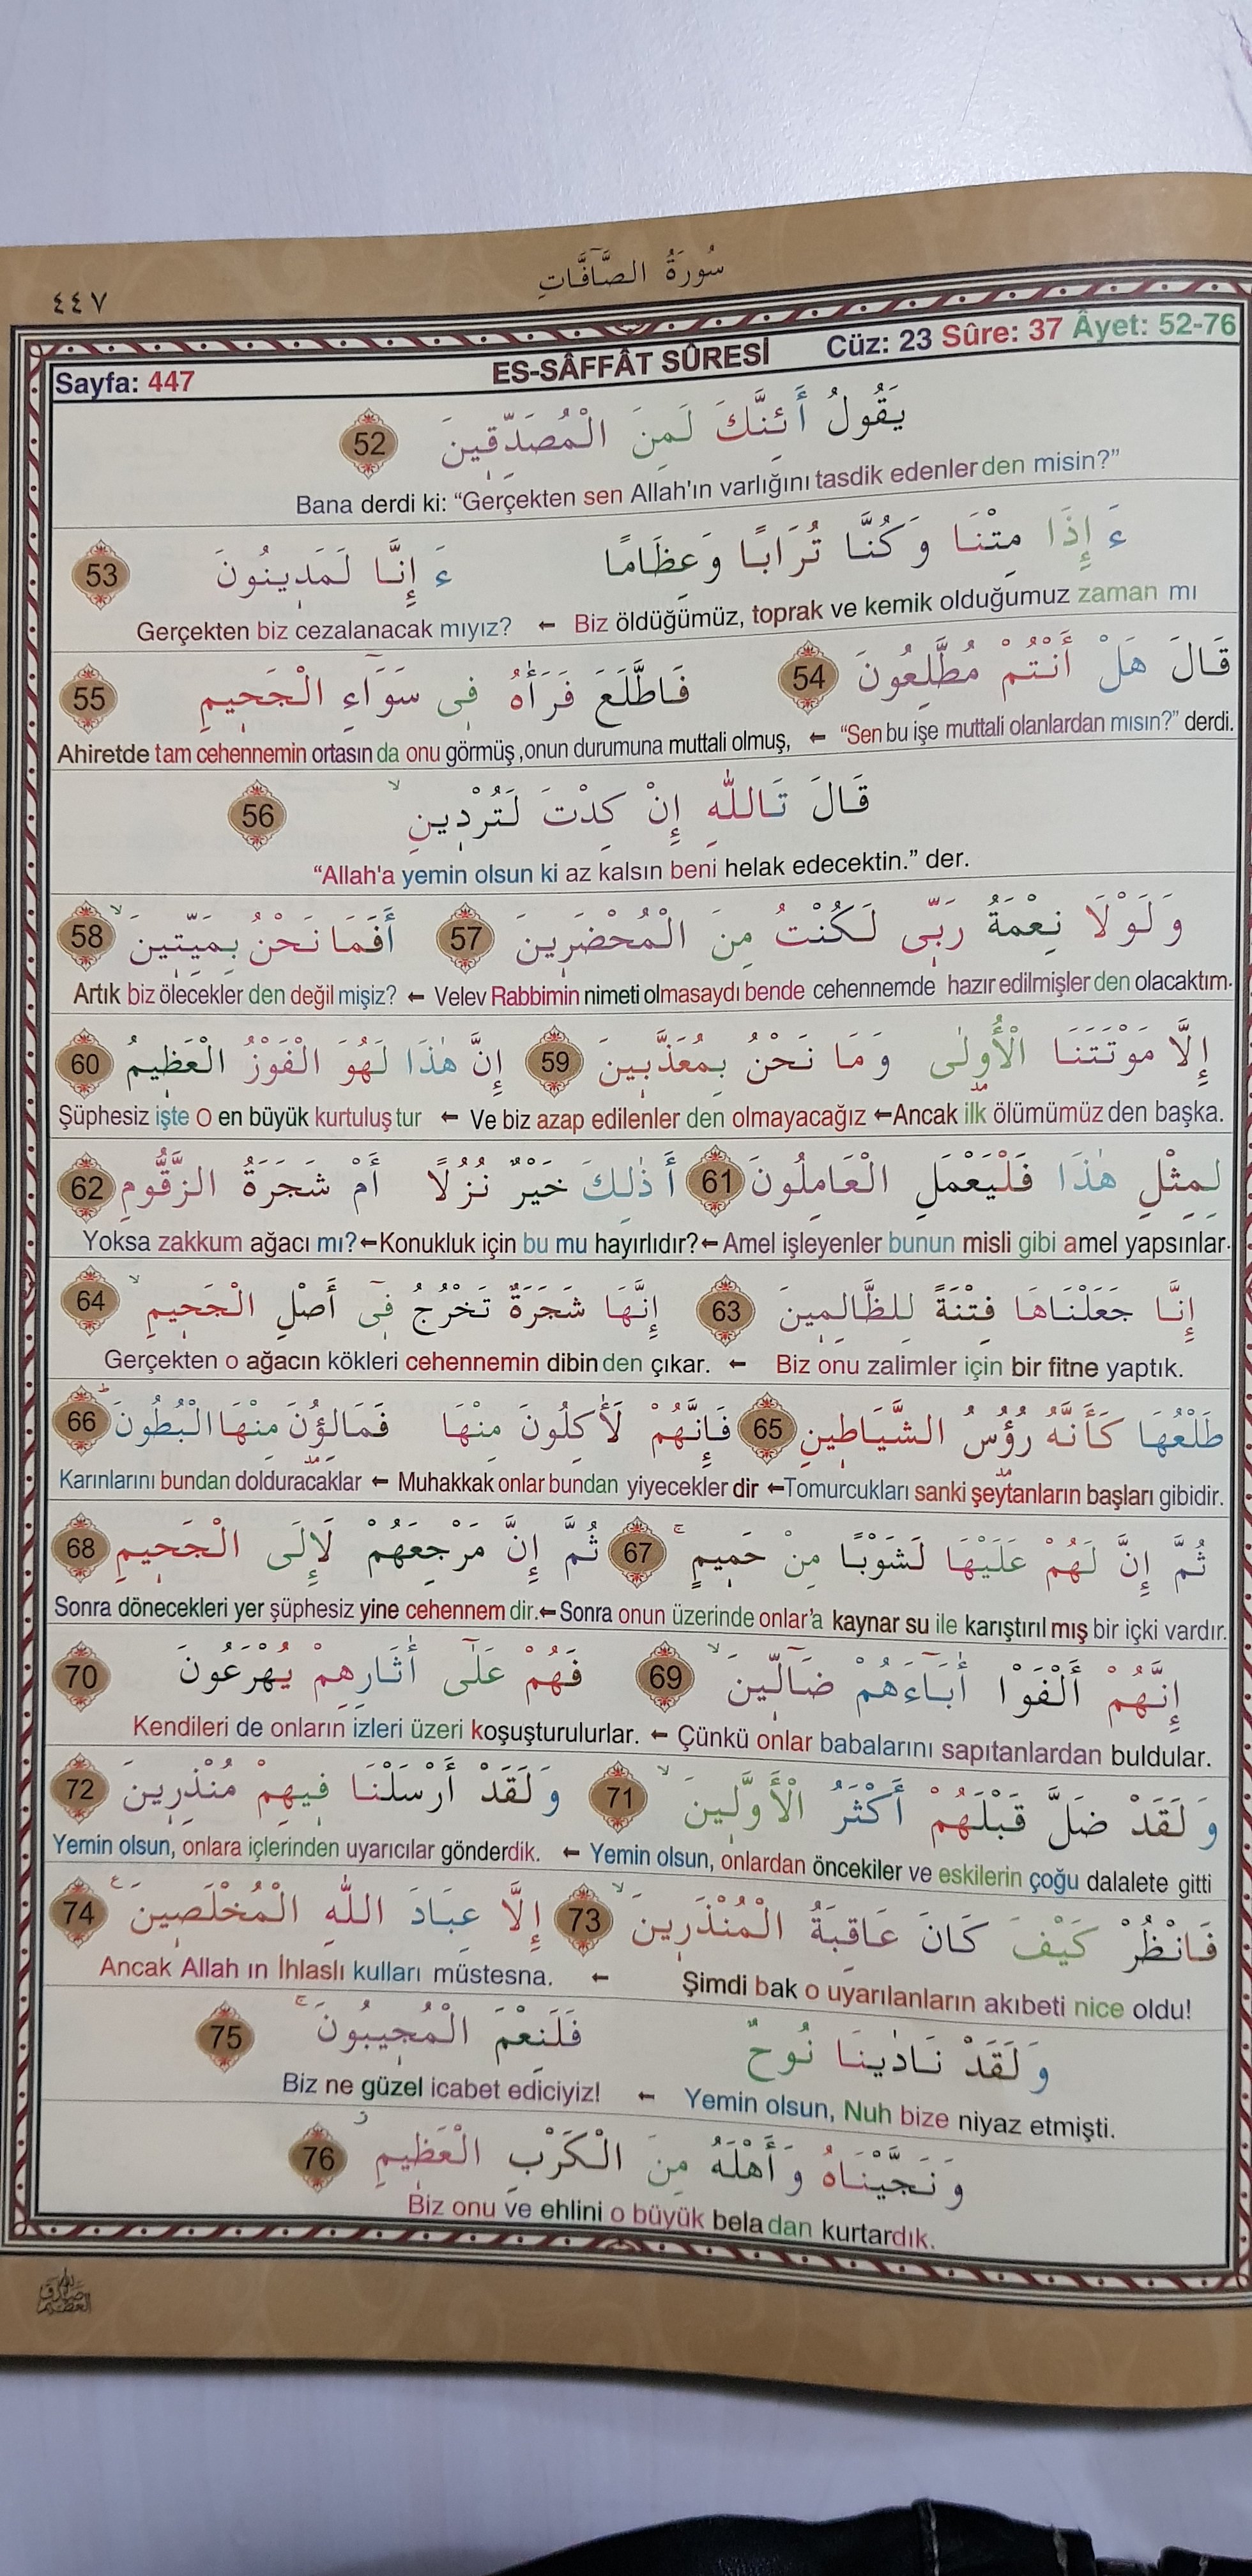 سُورَةُ الصَّٓافَّاتِ
٤٤٧
Sayfa: 447 ES-SÂFFÂT SÛRESİ Cüz: 23 Sûre: 37 Âyet: 52-76
يَقُولُ أَئِنَّكَ لَمِنَ الْمُصَدِّقِينَ 52
Bana derdi ki: “Gerçekten sen Allah'ın varlığını tasdik edenler den misin?”
ءَ إِذَا مِتْنَا وَ كُنَّا تُرَابًا وَ عِظَامًا ءَ إِنَّا لَمَدِينُونَ 53
Biz öldüğümüz, toprak ve kemik olduğumuz zaman mı ← Gerçekten biz cezalanacak mıyız?
قَالَ هَلْ أَنْتُمْ مُطَّلِعُونَ 54 فَاطَّلَعَ فَرَأٰهُ فِى سَوَٓاءِ الْجَحِيمِ 55
“Sen bu işe muttali olanlardan mısın?” derdi. ← Ahiretde tam cehennemin ortasın da onu görmüş ,onun durumuna muttali olmuş,
قَالَ تَاللّٰهِ إِنْ كِدْتَ لَتُرْدِينِ ۙ 56
“Allah'a yemin olsun ki az kalsın beni helak edecektin.” der.
وَ لَوْلَا نِعْمَةُ رَبِّى لَكُنْتُ مِنَ الْمُحْضَرِينَ 57 أَفَمَا نَحْنُ بِمَيِّتِينَ ۙ 58
Velev Rabbimin nimeti olmasaydı bende cehennemde hazır edilmişler den olacaktım. ← Artık biz ölecekler den değil mişiz?
إِلَّا مَوْتَتَنَا الْأُولٰى وَ مَا نَحْنُ بِمُعَذَّبِينَ 59 إِنَّ هٰذَا لَهُوَ الْفَوْزُ الْعَظِيمُ 60
Ancak ilk ölümümüz den başka. ← Ve biz azap edilenler den olmayacağız ← Şüphesiz işte O en büyük kurtuluş tur
لِمِثْلِ هٰذَا فَلْيَعْمَلِ الْعَامِلُونَ 61 أَ ذٰلِكَ خَيْرٌ نُزُلًا أَمْ شَجَرَةُ الزَّقُّومِ 62
Amel işleyenler bunun misli gibi amel yapsınlar. ← Konukluk için bu mu hayırlıdır? ← Yoksa zakkum ağacı mı?
إِنَّا جَعَلْنَاهَا فِتْنَةً لِلظَّالِمِينَ 63 إِنَّهَا شَجَرَةٌ تَخْرُجُ فِٓى أَصْلِ الْجَحِيمِ ۙ 64
Biz onu zalimler için bir fitne yaptık. ← Gerçekten o ağacın kökleri cehennemin dibin den çıkar.
طَلْعُهَا كَأَنَّهُ رُؤُسُ الشَّيَاطِينِ 65 فَإِنَّهُمْ لَأٰكِلُونَ مِنْهَا فَمَالِؤُنَ مِنْهَا الْبُطُونَ ۜ 66
Tomurcukları sanki şeytanların başları gibidir. ← Muhakkak onlar bundan yiyecekler dir ← Karınlarını bundan dolduracaklar
ثُمَّ إِنَّ لَهُمْ عَلَيْهَا لَشَوْبًا مِنْ حَمِيمٍ ۚ 67 ثُمَّ إِنَّ مَرْجِعَهُمْ لَإِلَى الْجَحِيمِ 68
Sonra onun üzerinde onlar'a kaynar su ile karıştırıl mış bir içki vardır. ← Sonra dönecekleri yer şüphesiz yine cehennem dir.
إِنَّهُمْ أَلْفَوْا أٰبَٓاءَهُمْ ضَٓالِّينَ ۙ 69 فَهُمْ عَلٰٓى أٰثَارِهِمْ يُهْرَعُونَ 70
Çünkü onlar babalarını sapıtanlardan buldular. ← Kendileri de onların izleri üzeri koşuşturulurlar.
وَ لَقَدْ ضَلَّ قَبْلَهُمْ أَكْثَرُ الْأَوَّلِينَ ۙ 71 وَ لَقَدْ أَرْسَلْنَا فِيهِمْ مُنْذِرِينَ 72
Yemin olsun, onlardan öncekiler ve eskilerin çoğu dalalete gitti ← Yemin olsun, onlara içlerinden uyarıcılar gönderdik.
فَانْظُرْ كَيْفَ كَانَ عَاقِبَةُ الْمُنْذَرِينَ ۙ 73 إِلَّا عِبَادَ اللّٰهِ الْمُخْلَصِينَ ع 74
Şimdi bak o uyarılanların akıbeti nice oldu! ← Ancak Allah ın İhlaslı kulları müstesna.
وَ لَقَدْ نَادٰينَا نُوحٌ فَلَنِعْمَ الْمُجِيبُونَ ۚ 75
Yemin olsun, Nuh bize niyaz etmişti. ← Biz ne güzel icabet ediciyiz!
وَ نَجَّيْنَاهُ وَ أَهْلَهُ مِنَ الْكَرْبِ الْعَظِيمِ ز 76
Biz onu ve ehlini o büyük bela dan kurtardık.